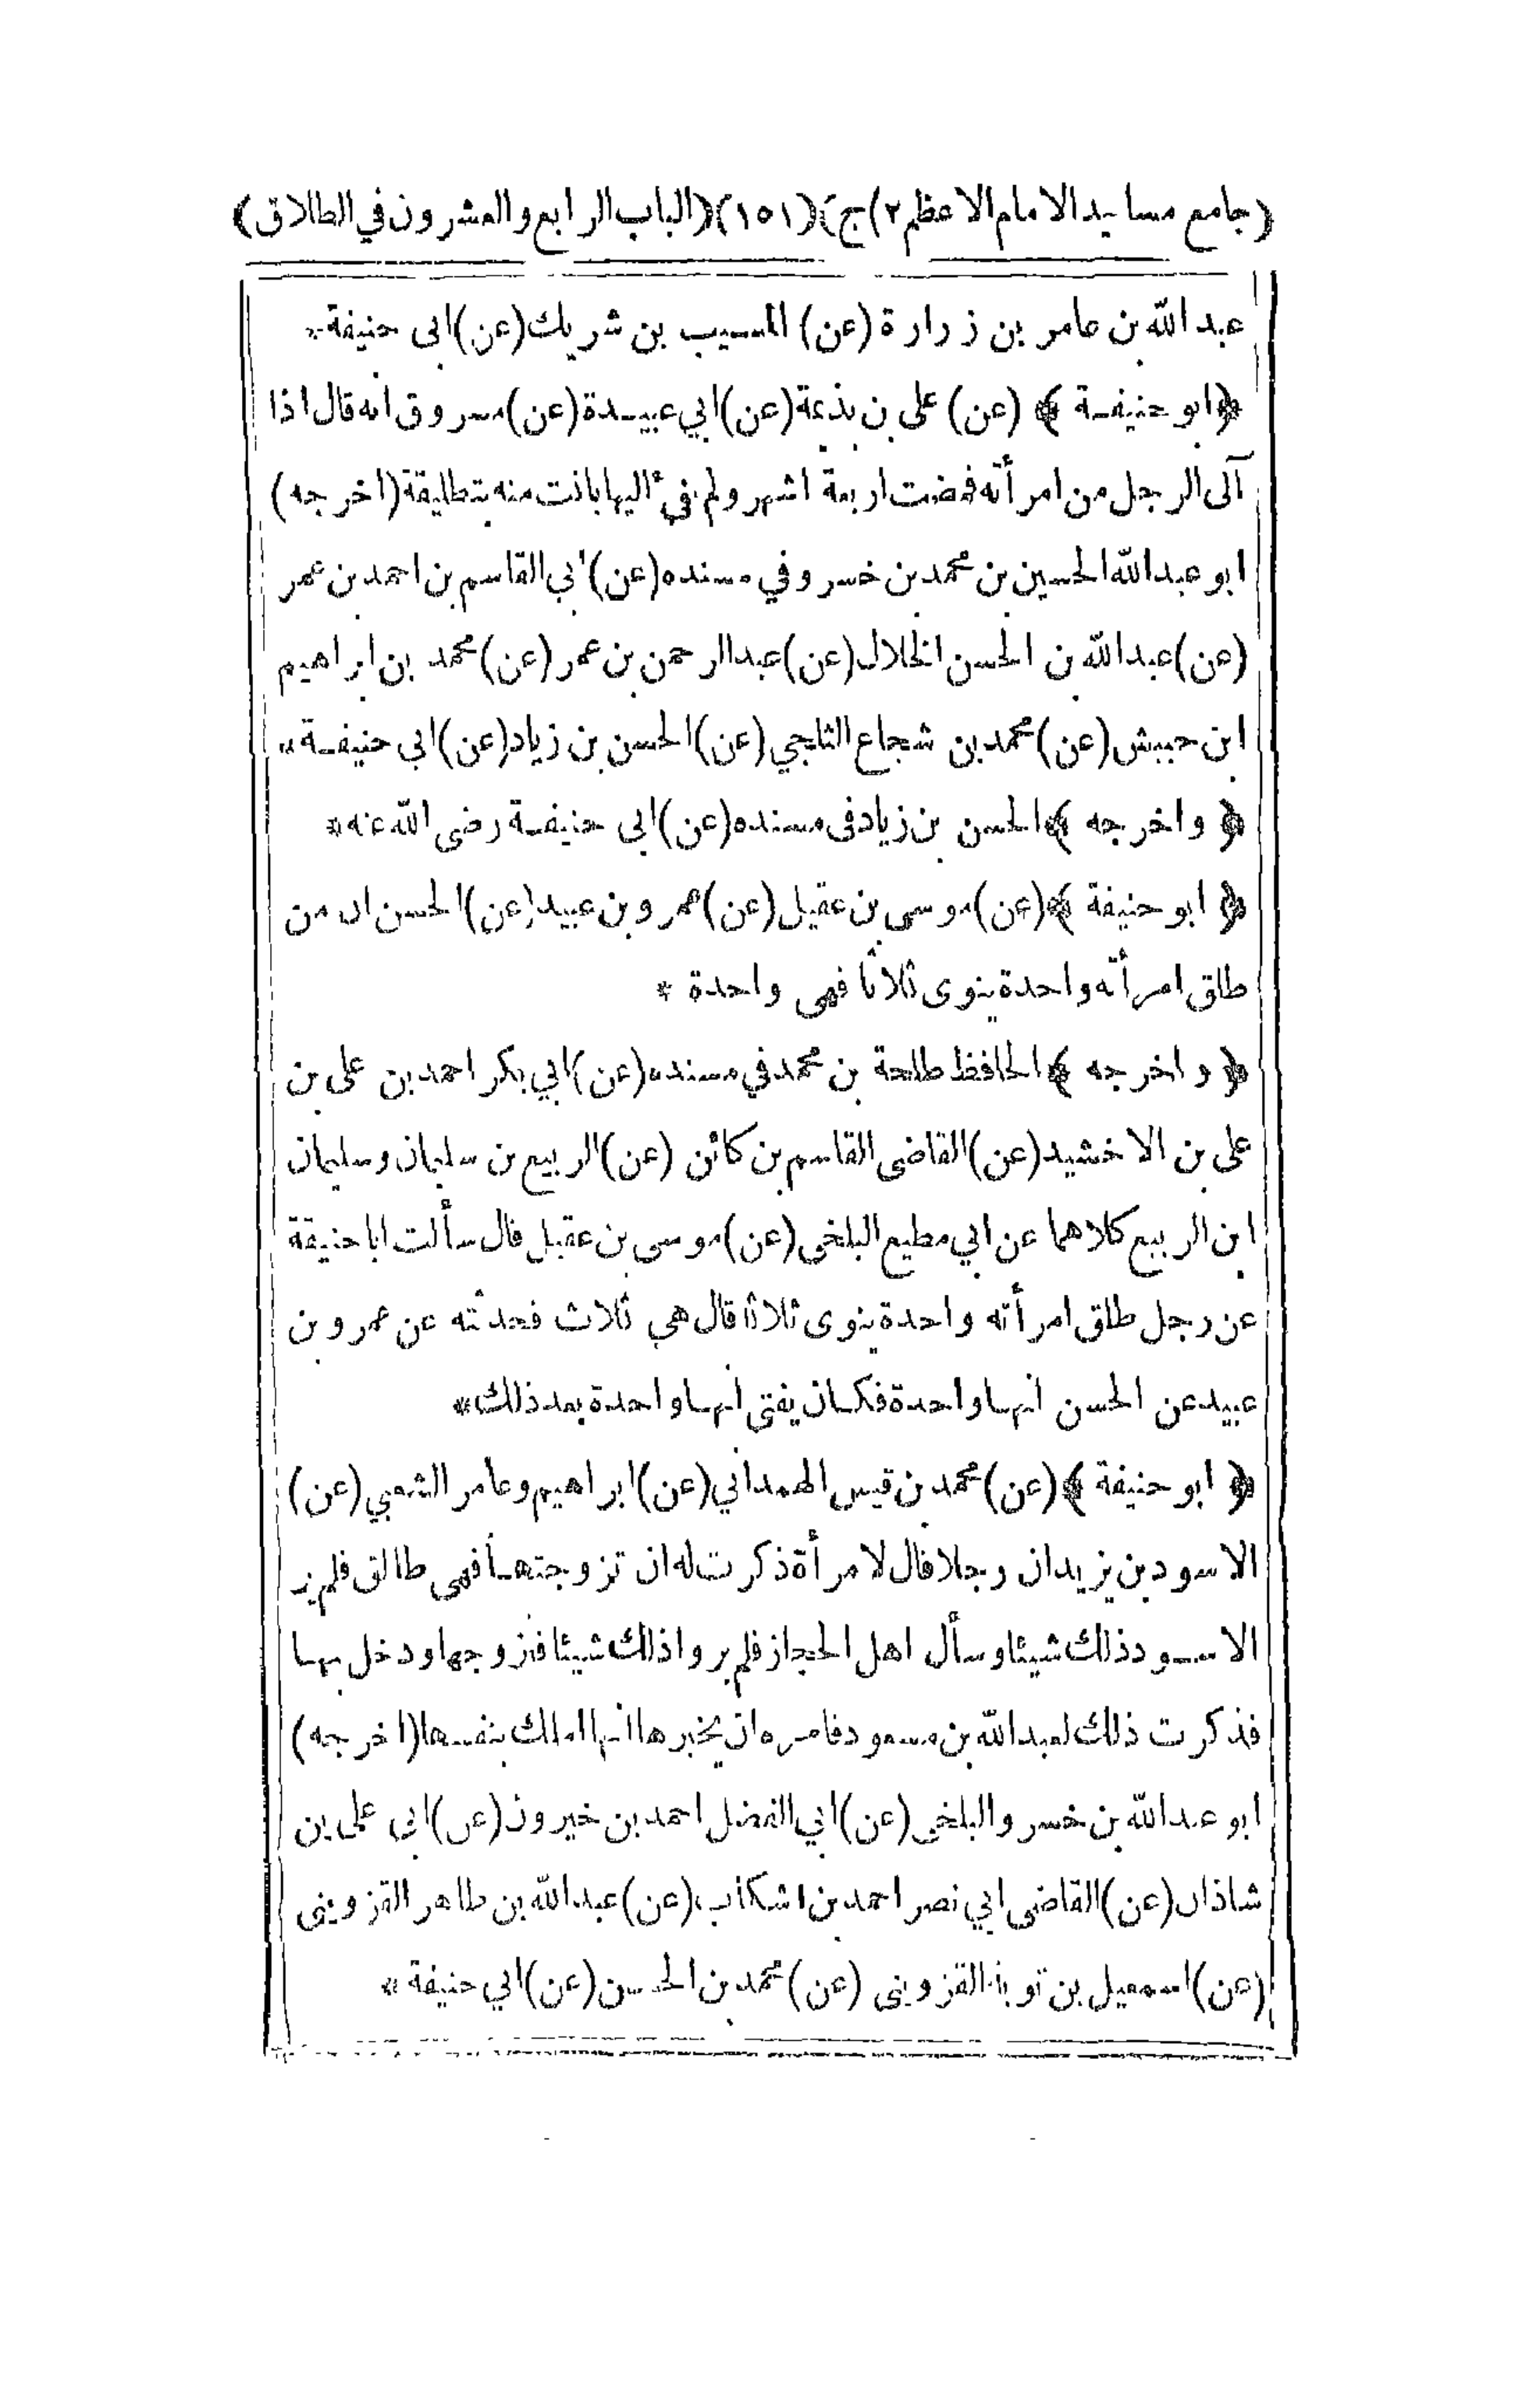 (جامع مسانيد الامام الاعظم ٢)ج)(١٥١)(الباب الرابع والعشرون في الطلاق)
عبد الله بن عامر بن زرارة (عن) المسيب بن شريك (عن) ابى حنيفة *
﴿ ابو حنيفة ﴾ (عن) على بن بذيمة (عن) ابي عبيدة (عن) مسروق انه قال اذا
آلى الرجل من امرأته فمضت اربعة اشهر ولم يفئ اليها بانت منه بتطليقة (اخرجه)
ابو عبد الله الحسين بن محمد بن خسرو في مسنده (عن) ابي القاسم بن احمد بن عمر
(عن) عبد الله بن الحسن الخلال (عن) عبد الرحمن بن عمر (عن) محمد بن ابراهيم
ابن حبيش (عن) محمد بن شجاع الثلجي (عن) الحسن بن زياد (عن) ابي حنيفة *
﴿ واخرجه ﴾ الحسن بن زياد فى مسنده (عن) ابى حنيفة رضى الله عنه *
﴿ ابو حنيفة ﴾ (عن) موسى بن عقيل (عن) عمرو بن عبيد (عن) الحسن ان من
طلق امرأته واحدة ينوى ثلاثا فهى واحدة *
﴿ واخرجه ﴾ الحافظ طلحة بن محمد في مسنده (عن) ابي بكر احمد بن على بن
على بن الاخشيد (عن) القاضى القاسم بن كائن (عن) الربيع بن سليمان وسليمان
ابن الربيع كلاهما عن ابي مطيع البلخى (عن) موسى بن عقيل قال سألت ابا حنيقة
عن رجل طلق امرأته واحدة ينوى ثلاثا قال هي ثلاث فحدثته عن عمرو بن
عبيد عن الحسن انها واحدة فكان يفتى انها واحدة بعد ذلك *
﴿ ابو حنيفة ﴾ (عن) محمد بن قيس الهمداني (عن) ابراهيم وعامر الشعبي (عن)
الاسود بن يزيد ان رجلا قال لامرأة ذكرت له ان تزوجتها فهى طالق فلم ير
الاسود ذلك شيئا وسأل اهل الحجاز فلم يروا ذلك شيئا فتزوجها ودخل بها
فذكرت ذلك لعبد الله بن مسعود فامره ان يخبرها انها املك بنفسها (اخرجه)
ابو عبد الله بن خسرو البلخى (عن) ابي الفضل احمد بن خيرون (عن) ابى على بن
شاذان (عن) القاضى ابي نصر احمد بن اشكاب (عن) عبد الله بن طاهر القزوينى
(عن) اسمعيل بن توبة القزوينى (عن) محمد بن الحسن (عن) ابي حنيفة *